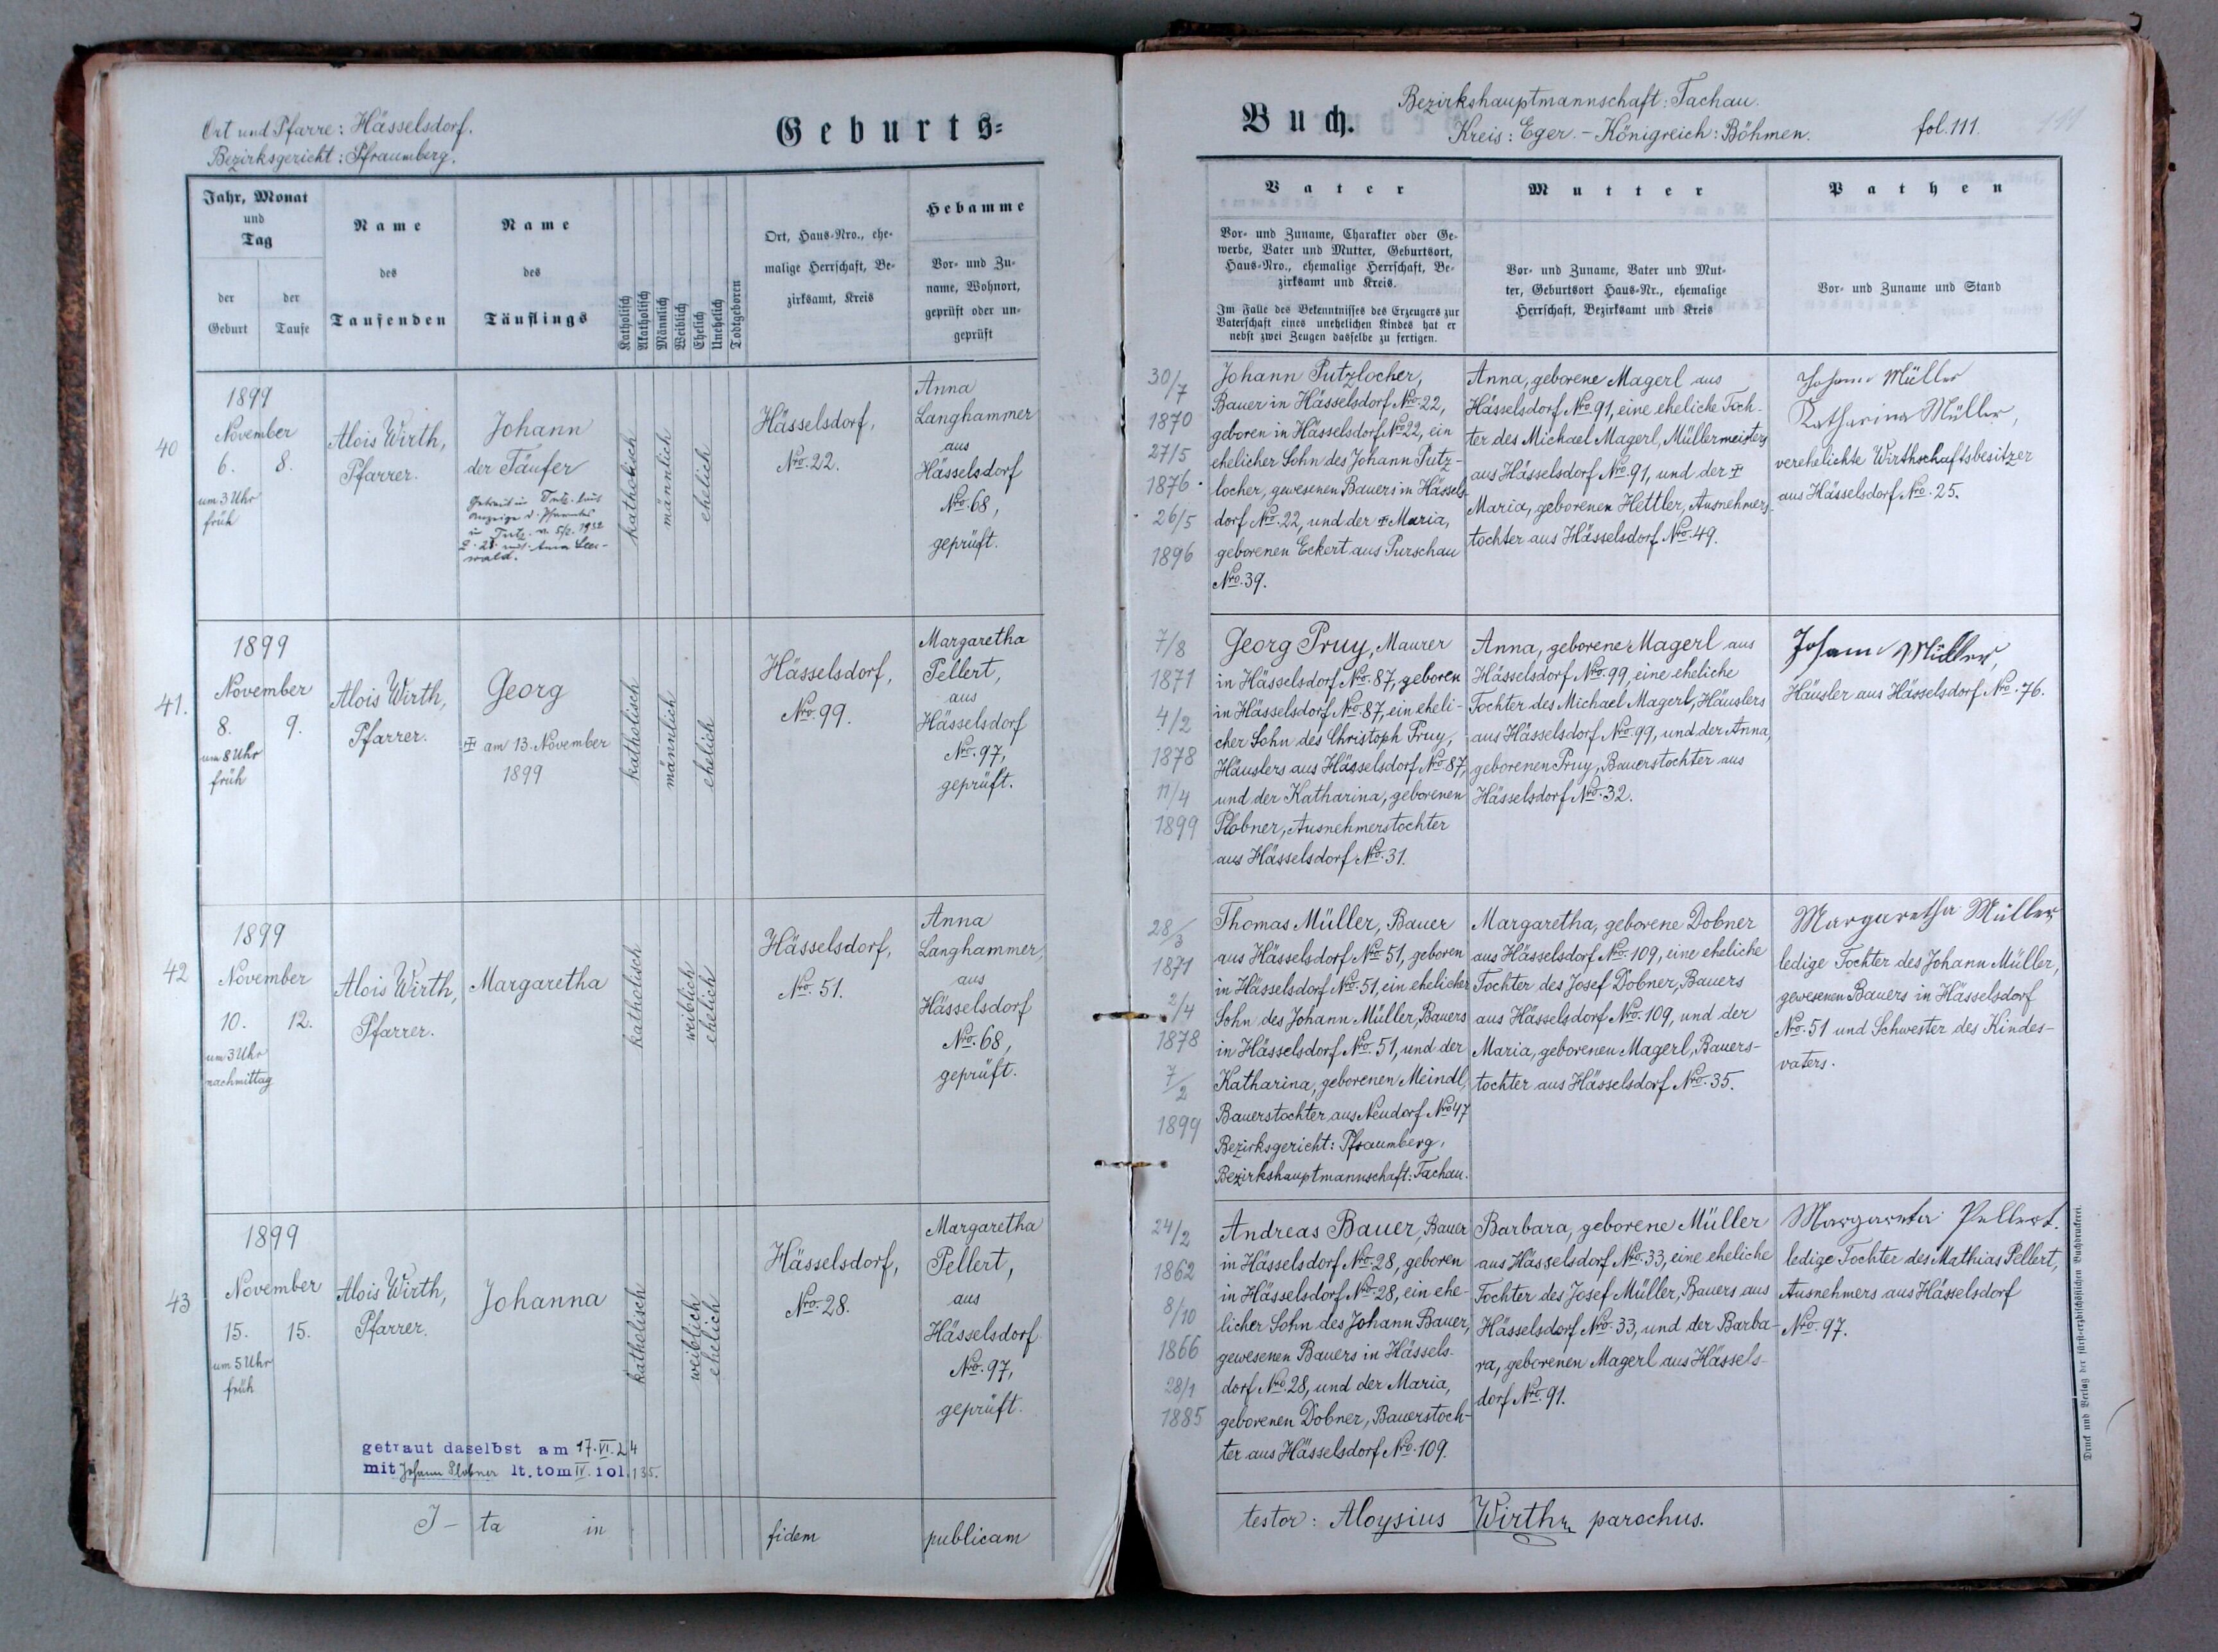 Ort und Pfarre: Hässelsdorf.
Bezirksgericht: Pfraumberg.
Geburts-
Jahr, Monat
und
Tag
der
Geburt
der
Taufe
Name
des
Taufenden
Name
des
Täuflings
Katholisch
Akatholisch
Männlich
Weiblich
Ehelich
Unehelich
Todtgeboren
Ort, Haus-Nro., ehe-
malige Herrschaft, Be-
zirksamt, Kreis
Hebamme
Vor- und Zu-
name, Wohnort,
geprüft oder un-
geprüft
40
1899
November
6. 8.
um 3 Uhr
früh
Alois Wirth,
Pfarrer.
Johann
der Täufer
katholisch
männlich
ehelich
Hässelsdorf,
Nro. 22.
Anna
Langhammer
aus
Hässelsdorf
Nro. 68,
geprüft.
41.
1899
November
8. 9.
um 8 Uhr
früh
Alois Wirth,
Pfarrer.
Georg
am 13. November
1899
katholisch
männlich
ehelich
Hässelsdorf,
Nro. 99.
Margaretha
Pellert,
aus
Hässelsdorf
Nro. 97,
geprüft.
42
1899
November
10. 12.
um 3 Uhr
nachmittag
Alois Wirth,
Pfarrer.
Margaretha
katholisch
weiblich
ehelich
Hässelsdorf,
Nro. 51.
Anna
Langhammer,
aus
Hässelsdorf
Nro. 68,
geprüft.
43
1899
November
15. 15.
um 5 Uhr
früh
Alois Wirth,
Pfarrer.
Johanna
katholisch
weiblich
ehelich
Hässelsdorf,
Nro. 28.
Margaretha
Pellert,
aus
Hässelsdorf
Nro. 97,
geprüft.
getraut daselbst am 17.VI.24
mit Johann Plobner lt. tom IV. fol. 135.
I-ta in fidem publicam
Buch.
Bezirkshauptmannschaft: Tachau.
Kreis: Eger. – Königreich: Böhmen.
fol. 111.
Vater
Vor- und Zuname, Charakter oder Ge-
werbe, Vater und Mutter, Geburtsort,
Haus-Nro., ehemalige Herrschaft, Be-
zirksamt und Kreis.
Im Falle des Bekenntnisses des Erzeugers zur
Vaterschaft eines unehelichen Kindes hat er
nebst zwei Zeugen dasselbe zu fertigen.
Mutter
Vor- und Zuname, Vater und Mut-
ter, Geburtsort Haus-Nr., ehemalige
Herrschaft, Bezirksamt und Kreis
Pathen
Vor- und Zuname und Stand
30/7
1870
27/5
1876
26/5
1896
Johann Putzlocher,
Bauer in Hässelsdorf Nro. 22,
geboren in Hässelsdorf Nro. 22, ein
ehelicher Sohn des Johann Putz-
locher, gewesenen Bauers in Hässels-
dorf Nro. 22, und der Maria,
geborenen Eckert aus Purschau
Nro. 39.
Anna, geborene Magerl aus
Hässelsdorf Nro. 91, eine eheliche Toch-
ter des Michael Magerl, Müllermeisters
aus Hässelsdorf Nro. 91, und der
Maria, geborenen Hettler, Ausnehmers-
tochter aus Hässelsdorf Nro. 49.
Johann Müller
Katharina Müller,
verehelichte Wirthschaftsbesitzer
aus Hässelsdorf Nro. 25.
7/8
1871
4/2
1878
11/4
1899
Georg Pruy, Maurer
in Hässelsdorf Nro. 87, geboren
in Hässelsdorf Nro. 87, ein eheli-
cher Sohn des Christoph Pruy,
Häuslers aus Hässelsdorf Nro. 87,
und der Katharina, geborenen
Plobner, Ausnehmerstochter
aus Hässelsdorf Nro. 31.
Anna, geborene Magerl aus
Hässelsdorf Nro. 99, eine eheliche
Tochter des Michael Magerl, Häuslers
aus Hässelsdorf Nro. 99, und der Anna,
geborenen Pruy, Bauerstochter aus
Hässelsdorf Nro. 32.
Johann Müller,
Häusler aus Hässelsdorf Nro. 76.
28/3
1871
2/4
1878
7/2
1899
Thomas Müller, Bauer
aus Hässelsdorf Nro. 51, geboren
in Hässelsdorf Nro. 51, ein ehelicher
Sohn des Johann Müller, Bauers
in Hässelsdorf Nro. 51, und der
Katharina, geborenen Meindl,
Bauerstochter aus Neudorf Nro 47
Bezirksgericht: Pfraumberg,
Bezirkshauptmannschaft: Tachau.
Margaretha, geborene Dobner
aus Hässelsdorf Nro. 109, eine eheliche
Tochter des Josef Dobner, Bauers
aus Hässelsdorf Nro. 109, und der
Maria, geborenen Magerl, Bauers-
tochter aus Hässelsdorf Nro. 35.
Margaretha Müller
ledige Tochter des Johann Müller,
gewesenen Bauers in Hässelsdorf
Nro. 51 und Schwester des Kindes-
vaters.
24/2
1862
8/10
1866
28/1
1885
Andreas Bauer, Bauer
in Hässelsdorf Nro. 28, geboren
in Hässelsdorf Nro. 28, ein ehe-
licher Sohn des Johann Bauer,
gewesenen Bauers in Hässels-
dorf Nro. 28, und der Maria,
geborenen Dobner, Bauerstoch-
ter aus Hässelsdorf Nro. 109.
Barbara, geborene Müller
aus Hässelsdorf Nro. 33, eine eheliche
Tochter des Josef Müller, Bauers aus
Hässelsdorf Nro. 33, und der Barba-
ra, geborenen Magerl aus Hässels-
dorf Nro. 91.
Margareta Pellert.
ledige Tochter des Mathias Pellert,
Ausnehmers aus Hässelsdorf
Nro. 97.
testor: Aloysius Wirth parochus.
Druck und Verlag der fürst-erzbischöflichen Buchdruckerei.